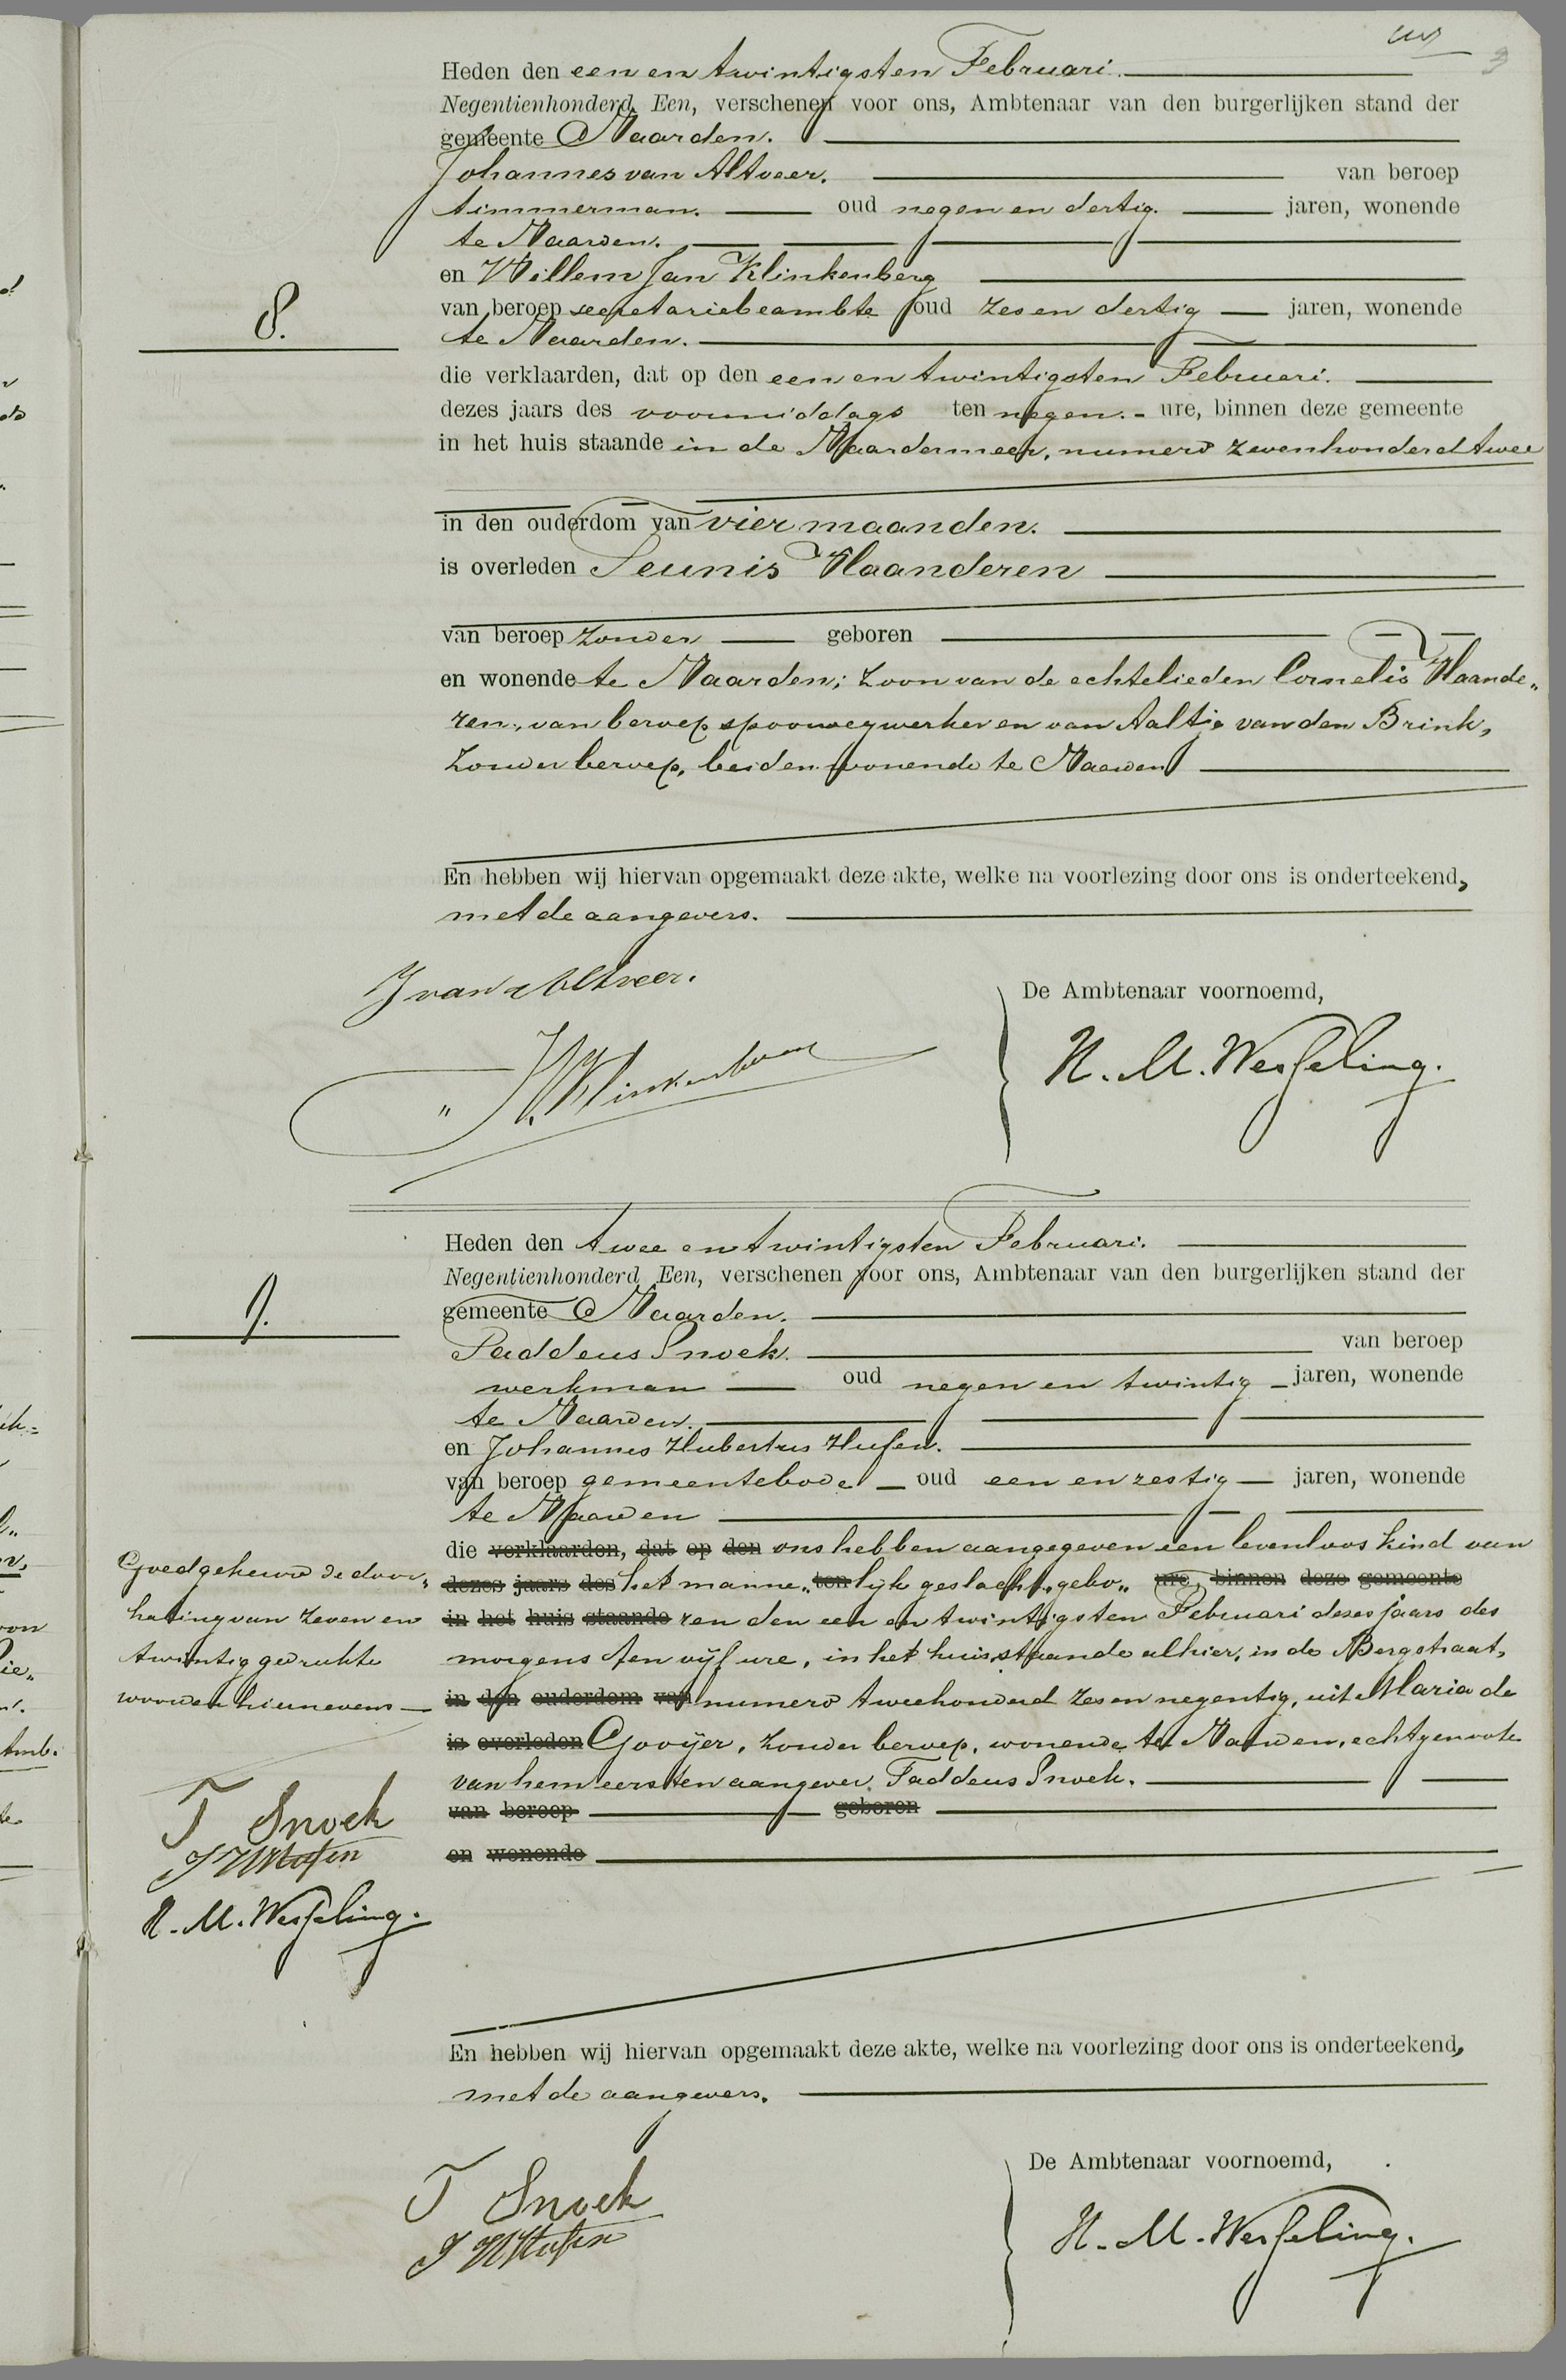 3
Heden den een en twintigsten Februari.
Negentienhonderd Een, verschenen voor ons, Ambtenaar van den burgerlijken stand der
gemeente Naarden.
Johannes van Altveer. van beroep
timmerman. oud negen en dertig. jaren, wonende
te Naarden.
en Willem Jan Klinkenberg
8.
van beroep secretariebeambte oud zes en dertig jaren, wonende
te Naarden.
die verklaarden, dat op den een en twintigsten Februari.
dezes jaars des voormiddags ten negen. ure, binnen deze gemeente
in het huis staande in de Naardermeer, numero zevenhonderd twee
in den ouderdom van vier maanden.
is overleden Teunis Vlaanderen
van beroep zonder geboren
en wonende te Naarden; zoon van de echtelieden Cornelis Vlaande„
ren, van beroep spoorwegwerker en van Aaltje van den Brink,
zonder beroep, beiden wonende te Naarden
En hebben wij hiervan opgemaakt deze akte, welke na voorlezing door ons is onderteekend,
met de aangevers.
J van Altveer.
De Ambtenaar voornoemd,
WJKlinkenberg
H. M. Wesseling.
Heden den twee en twintigsten Februari.
Negentienhonderd Een, verschenen voor ons, Ambtenaar van den burgerlijken stand der
9.
gemeente Naarden.
Taddeus Snoek. van beroep
werkman oud negen en twintig jaren, wonende
te Naarden.
en Johannes Hubertus Husen.
van beroep gemeentebode oud een en zestig jaren, wonende
te Naarden
die verklaarden, dat op den ons hebben aangegeven een levenloos kind van
dezes jaars des het manne„ ten lijk geslacht, gebo„ ure, binnen deze gemeente
in het huis staande ren den een en twintigsten Februari dezes jaars des
morgens ten vijf ure, in het huis staande alhier, in de Bergstraat,
in den ouderdom van numero tweehonderd zes en negentig, uit Maria de
is overleden Gooijer, zonder beroep, wonende te Naarden, echtgenoote
van hem eersten aangever Taddeus Snoek.
van beroep geboren
en wonende
Goedgekeurd de door„
haling van zeven en
twintig gedrukte
woorden hiernevens
T Snoek
J H Husen
H. M. Wesseling.
En hebben wij hiervan opgemaakt deze akte, welke na voorlezing door ons is onderteekend,
met de aangevers.
De Ambtenaar voornoemd,
T Snoek
J H Husen
H. M. Wesseling.